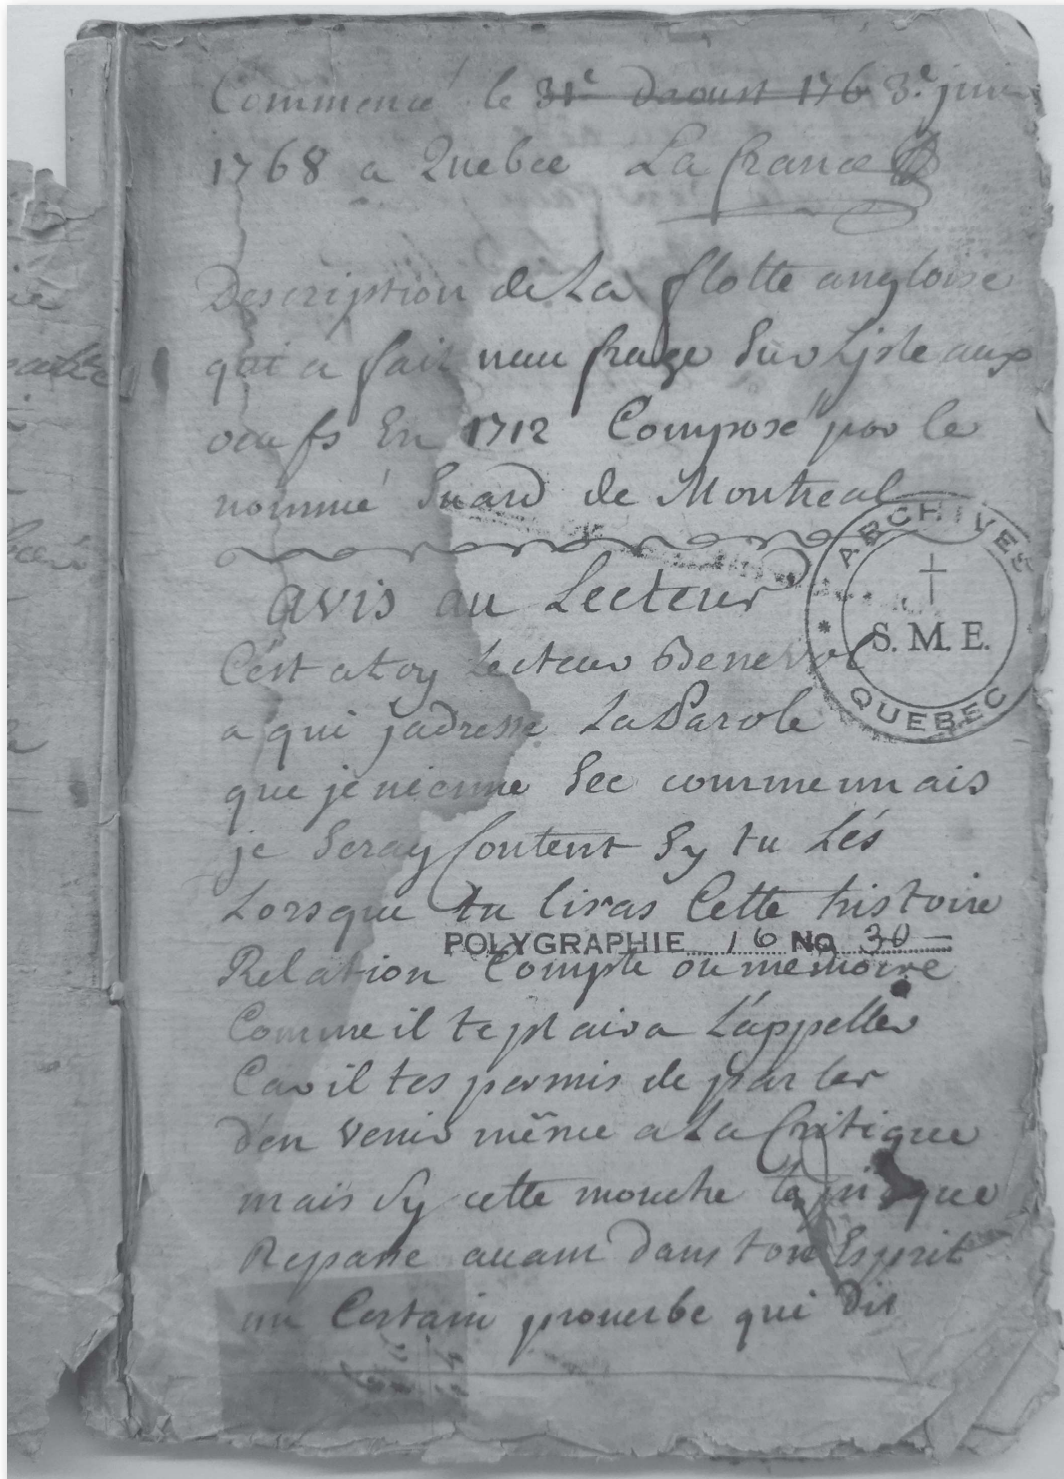 Commencé le 31e daoust 176 3e juin
1768 a Quebec La france
Description de La flotte angloise
qui a fait nau frage Sur Lisle aux
oeufs En 1712 Composé par le
nommé Suard de Montreal
ARCHIVES
S. M. E.
QUEBEC
avis au Lecteur
C'est a toy Lecteur Benevol
a qui j'adresse La Parole
que je
je Seray Content Sy tu Lés
Lorsque tu liras Cette histoire
POLYGRAPHIE 16 NO 30
Relation Compte ou memoire
Comme il te plaira L'appeller
Car il tes permis de parler
d'en venir même a La Critique
mais Sy cette mouche te picque
Repasse auant dans ton Esprit
un Certain prouerbe qui dit